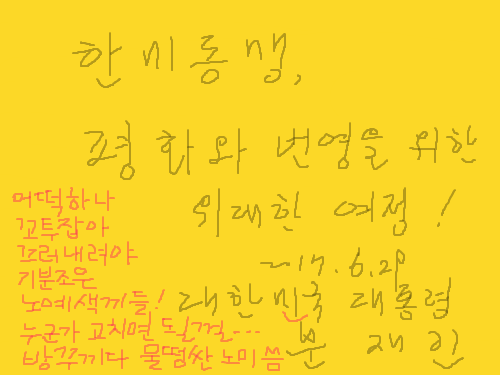 한미동맹,
평화와 번영을 위한
위대한 여정!
17. 6. 29
대한민국 대통령
문재인
머떡하나
꼬투잡아
끄러내려야
기분조은
노예색게들!
누군가 고치면
방꾸끼다 물떰싼 노미 씀